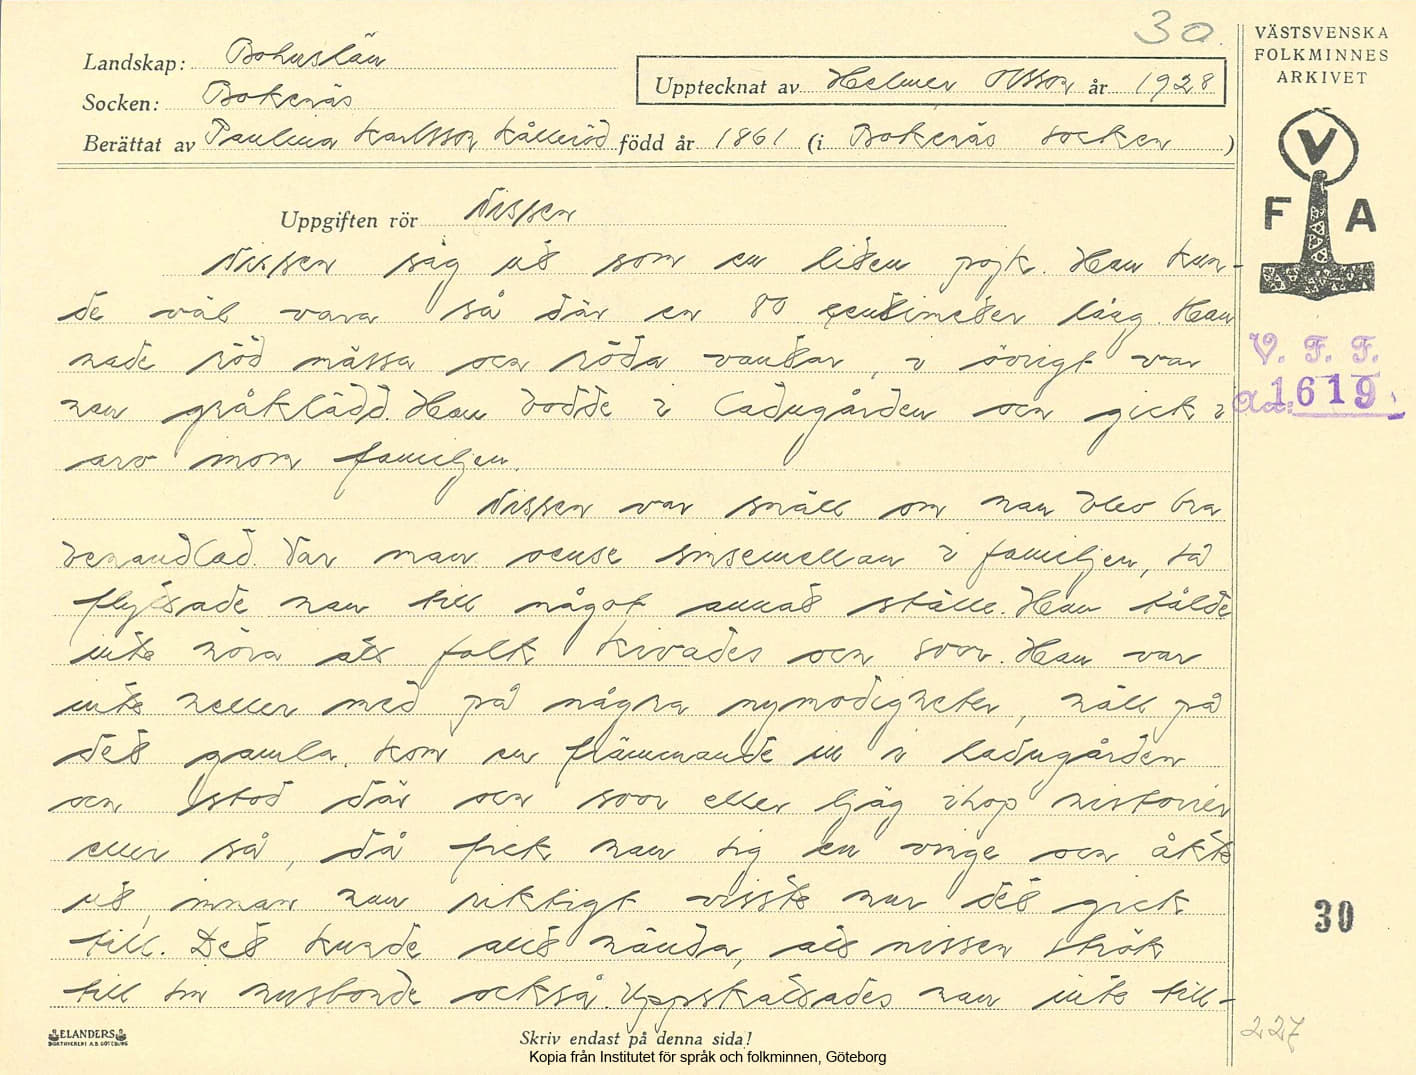 30.
VÄSTSVENSKA
FOLKMINNES
ARKIVET
Landskap: Bohuslän
Socken: Bokenäs
Upptecknat av Helmer Olsson år 1928
Berättat av Paulina Karlsson Kålleröd född år 1861 (i Bokenäs socken)
V
F A
Uppgiften rör Nissen
Nissen såg ut som en liten pojk. Han kun-
de väl vara så där en 80 centimeter låg. Han
hade röd mössa och röda vantar, i övrigt var
han gråklädd. Han bodde i ladugården och gick i
arv inom familjen.
Nissen var snäll om han blev bra
behandlad. Var man oense sinsemellan i familjen, så
flyttade han till något annat ställe. Han tålde
inte höra att folk kivades och svor. Han var
inte heller med på några nymodigheter, höll på
det gamla. Kom en främmande in i ladugården
och stod där och svor eller ljög ihop historier
eller så, då fick han sig en vinge och åkte
ut, innan han riktigt visste hur det gick
till. Det kunde allt hända, att nissen strök
till sin husbonde också. Uppskattades han inte till-
V. F. F.
1619
30
227
ELANDERS
BOKTRYCKERI A.B. GÖTEBORG
Skriv endast på denna sida!
Kopia från Institutet för språk och folkminnen, Göteborg